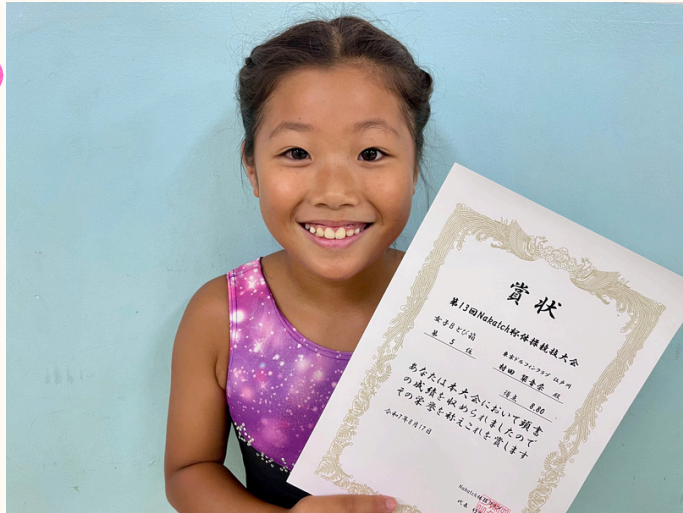 賞状
第13回Nakatch杯体操競技大会
女子Bとび箱
東京ドルフィンクラブ 江戸川
第 5 位
村田 
得点 8.80
あなたは本大会において頭書
の成績を収められましたので
その栄誉を称えこれを賞します
令和7年8月17日
Nakatch
代表